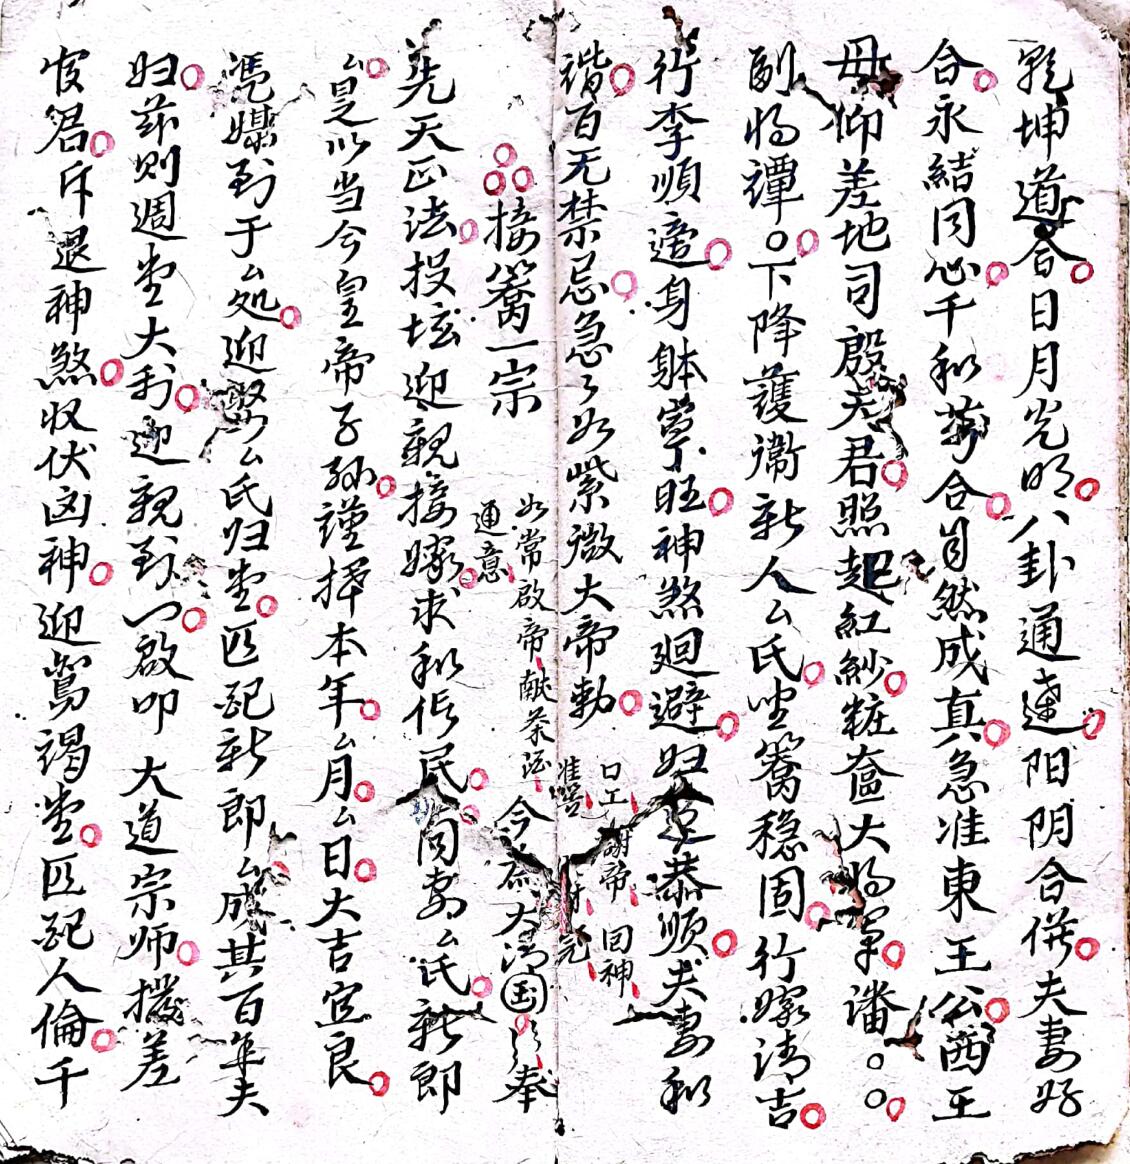 乾坤道合日月光明八卦通達阳阴合併夫妻好
合永結同心千和萬合自然成真急准東王公西王
母仰差地司殷夫君照起紅紗粧奩大将軍潘〇〇
副将譚〇下降護衛新人厶氏坐簥稳固行嫁清吉
行李順遆身躰寧旺神煞廻避妇道恭顺夫妻和
谐百无禁忌急々如紫微大帝勅
口工 謝帝 回神
准告 元
接簥一宗
如常啟帝献茶酒
通意
今為大清国云云奉
先天正法投坛迎親接嫁求和信民厶同妻厶氏新郎
厶是以当今皇帝子孫謹择本年厶月厶日大吉宜良
馮媒到于厶処迎娶厶氏归堂匹配新郎厶成其百年夫
妇茲则週堂大利迎親到一啟叩 大道宗师撥差
官君斥退神煞收伏凶神迎鸾謁堂匹配人倫千